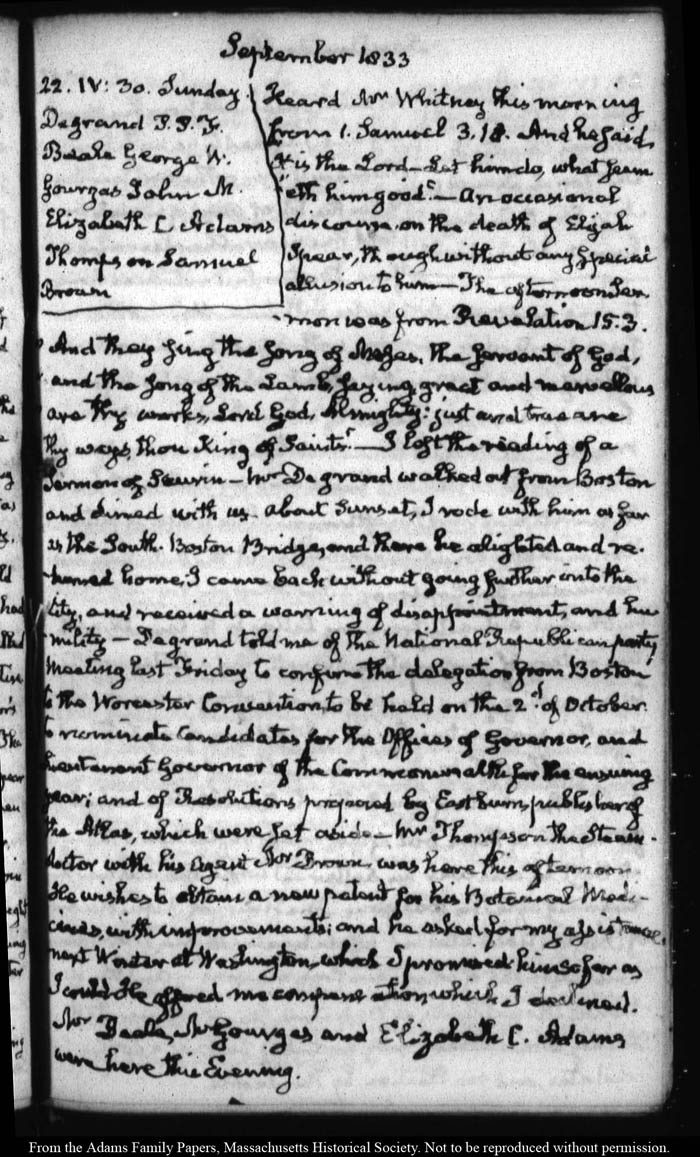 September 1833
22. IV: 30. Sunday.
Degrand P. P. F.
Beale George W.
Gourgas John M.
Elizabeth C. Adams
Thompson Samuel
Brown
Heard Mr Whitney this morning
from 1. Samuel 3.18. And he said,
It is the Lord—Let him do, what seem
eth him good"—An occasional
discourse on the death of Elijah
Spear, though without any special
allusion to him—The afternoon Ser
mon was from Revelation 15.3.
And they sing the song of Moses, the servant of God,
and the song of the Lamb, saying, great and marvellous
are thy works, Lord God, Almighty: just and true are
thy ways, thou King of Saints"—I left the reading of a
Sermon of Saurin—Mr Degrand walked out from Boston
and dined with us. About Sunset, I rode with him as far
as the South-Boston Bridge, and there he alighted and re-
turned home. I came back without going further into the
City, and received a warning of disappointment, and hu
mility—Degrand told me of the National Republican party
Meeting last Friday to confirm the delegation from Boston
to the Worcester Convention, to be held on the 2d of October.
to nominate Candidates for the Offices of Governor, and
Lieutenant Governor of the Commonwealth for the ensuing
year; and of Resolutions prepared by Eastburn, publisher of
the Atlas, which were set aside—Mr Thompson the Steam-
doctor with his agent Mr Brown was here this afternoon
He wishes to obtain a new patent for his Botanical Medi-
cines, with improvements; and he asked for my assistance
next Winter at Washington, which I promised him so far as
I could. He offered me compensation which I declined.
Mr Beale, Mr Gourgas and Elizabeth C. Adams
were here this Evening.
From the Adams Family Papers, Massachusetts Historical Society. Not to be reproduced without permission.